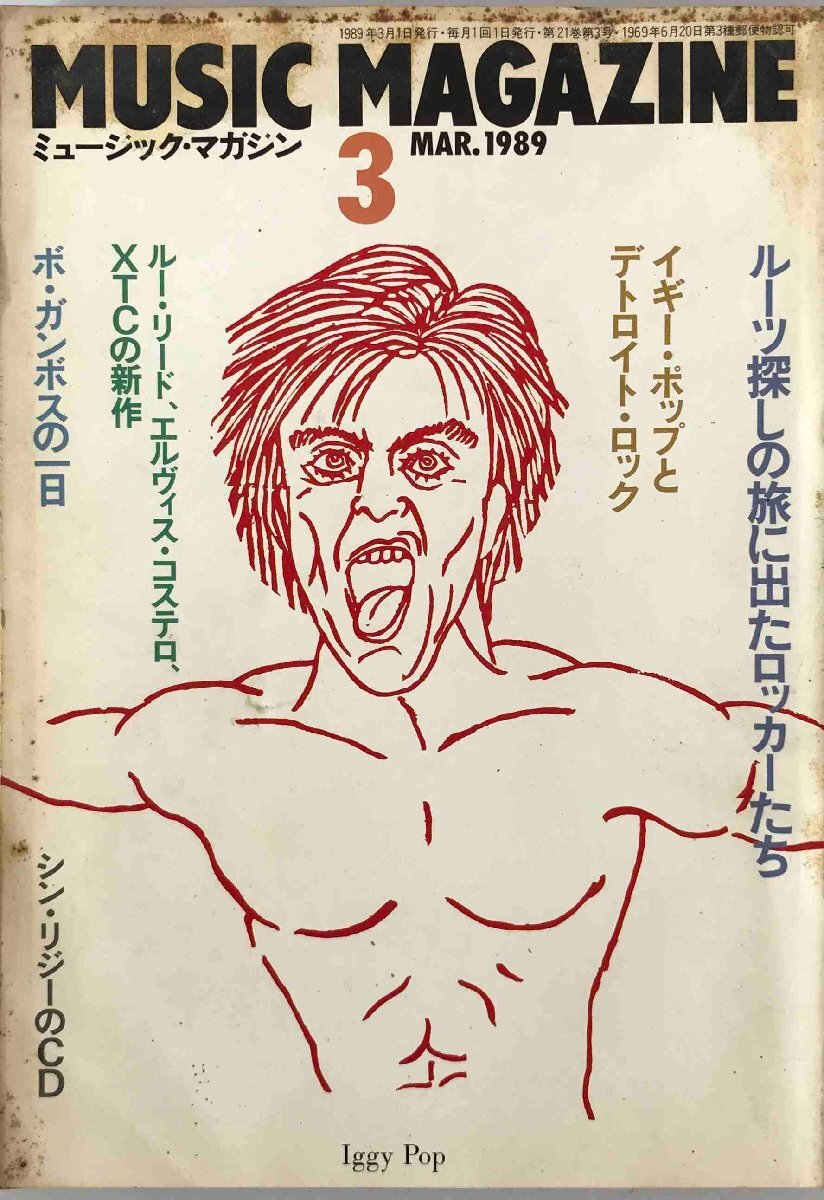 1989年3月1日発行・毎月1回1日発行・第21巻第3号・1969年6月20日第3種郵便物認可
MUSIC MAGAZINE
ミュージック・マガジン
3
MAR. 1989
ルーツ探しの旅に出たロッカーたち
イギー・ポップと
デトロイト・ロック
ルー・リード、エルヴィス・コステロ、
XTCの新作
ボ・ガンボスの一日
シン・リジーのCD
Iggy Pop